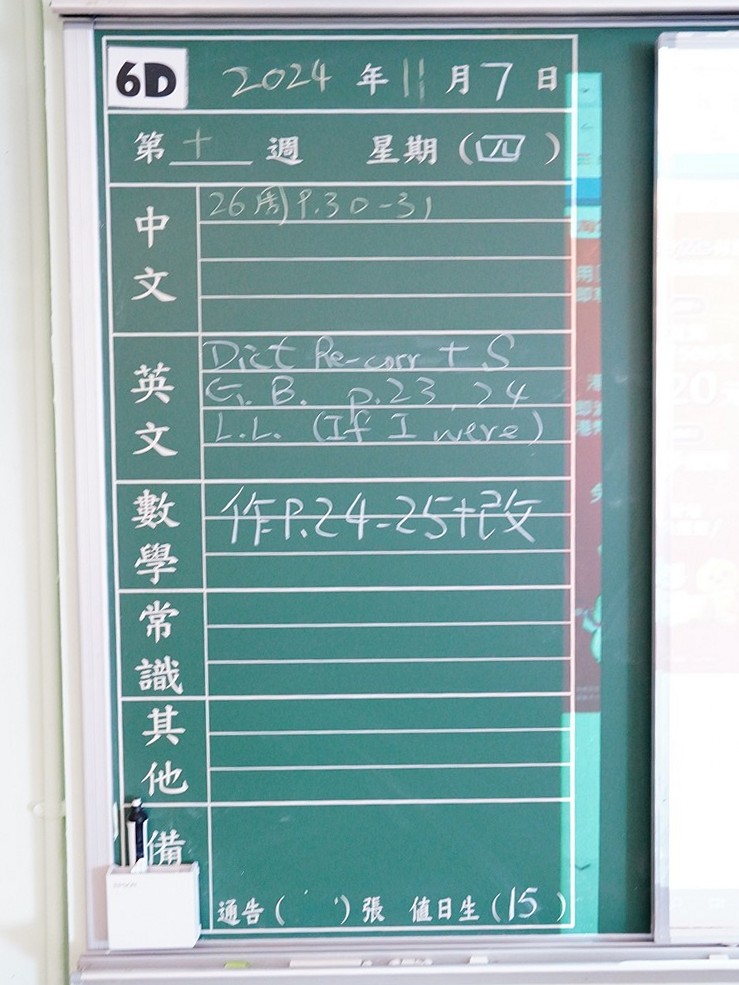 6D 2024 年 11 月 7 日
第 十 週 星期 (四)
中文
26周 P.30-31
英文
Dict Re-corr + S
G. B. p.23, 24
L.L. (If I were)
數學
作P.24-25+改
常識
其他
備
通告 ( ) 張 值日生 (15)